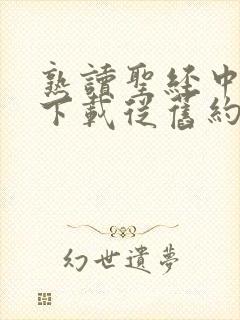 熟讀聖経中
下載従舊約
幻世遺夢